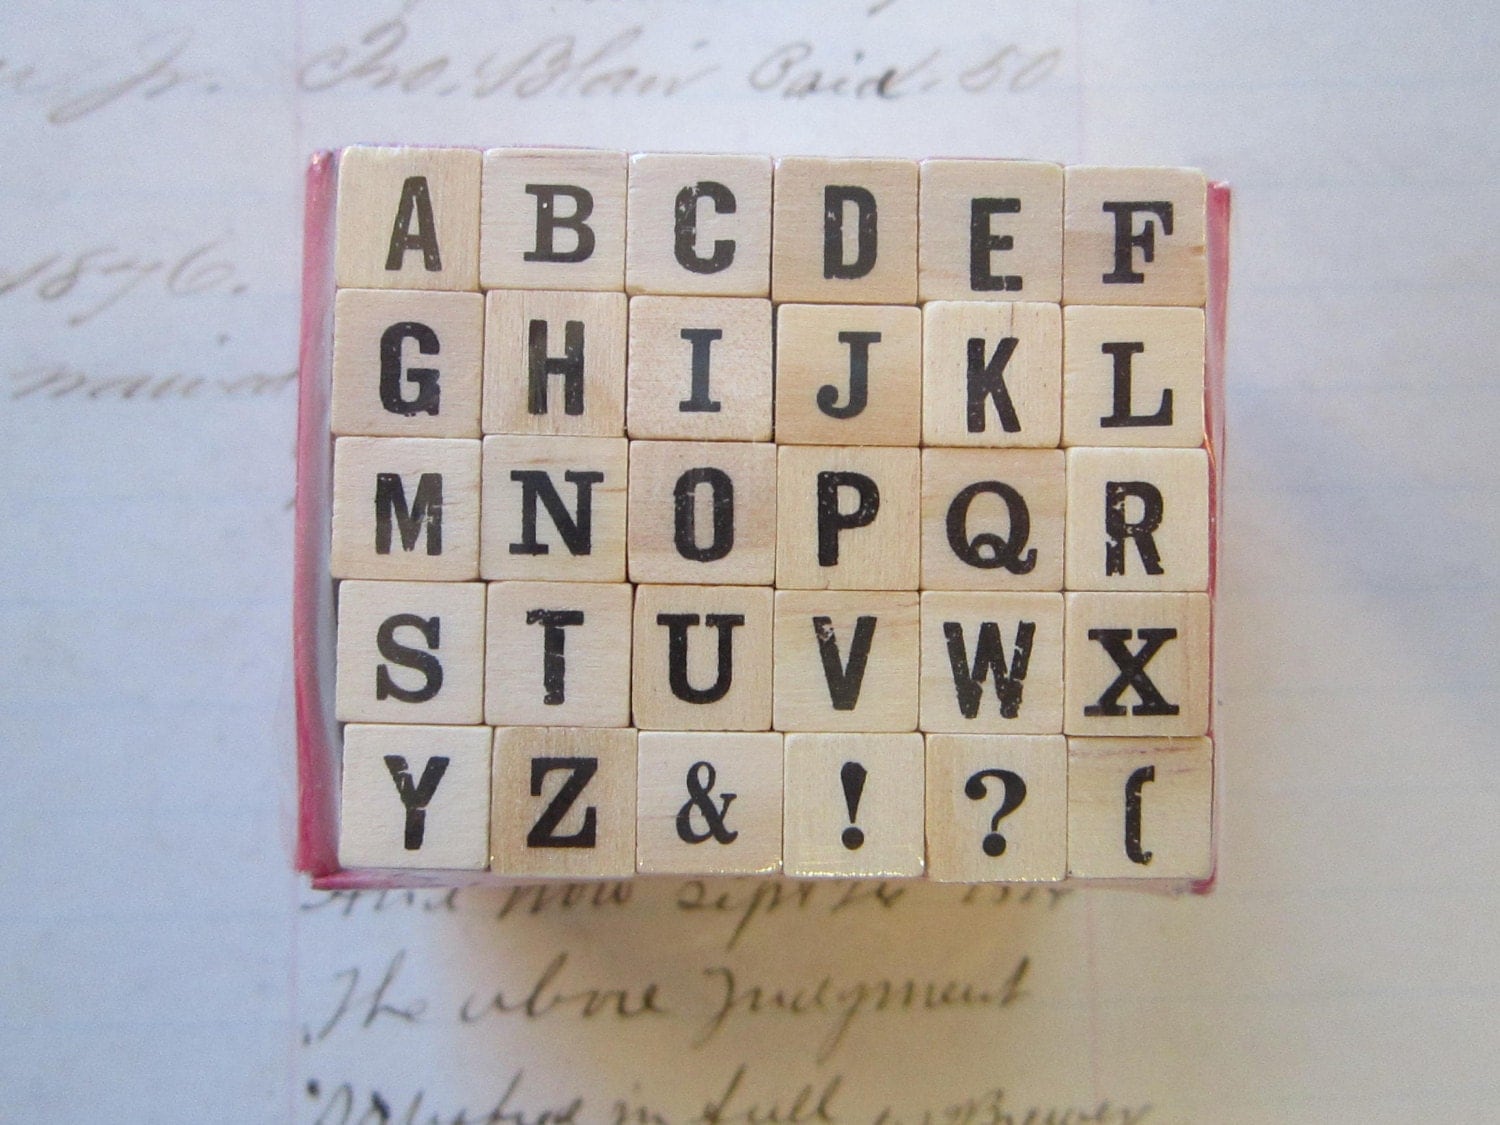 Jr. Jno. Blair Paid. 50
A B C D E F
1876.
G H I J K L
M N O P Q R
S T U V W X
Y Z & ! ? (
And now Sept
The above Judgment
in full